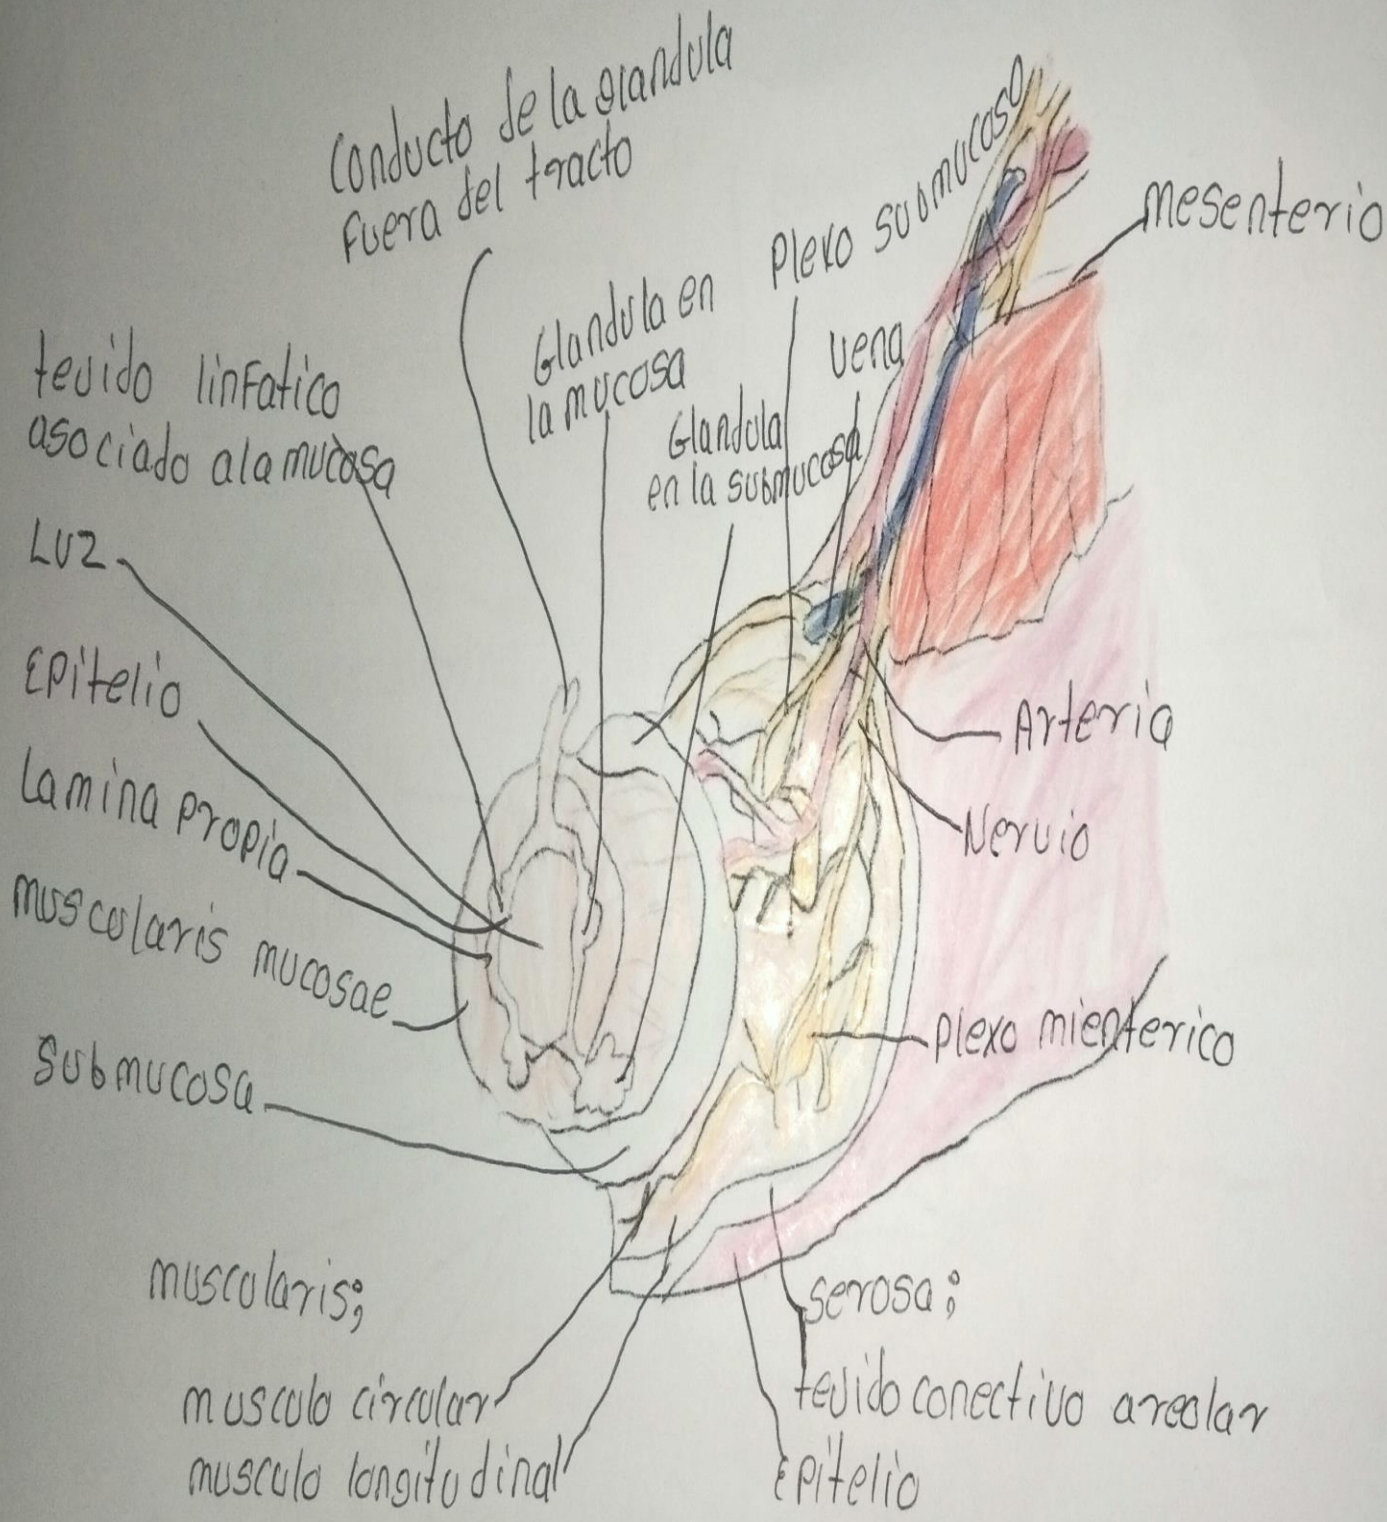 Conducto de la glandula
fuera del tracto
Plexo submucoso
mesenterio
Glandula en
la mucosa
vena
tevido linfatico
asociado ala mucosa
Glandula
en la submucosa
Luz
Epitelio
Lamina propia
muscularis mucosae
Submucosa
Arteria
Nervio
Plexo mienterico
muscolaris;
musculo circular
musculo longitudinal
serosa;
tevido conectivo areolar
Epitelio